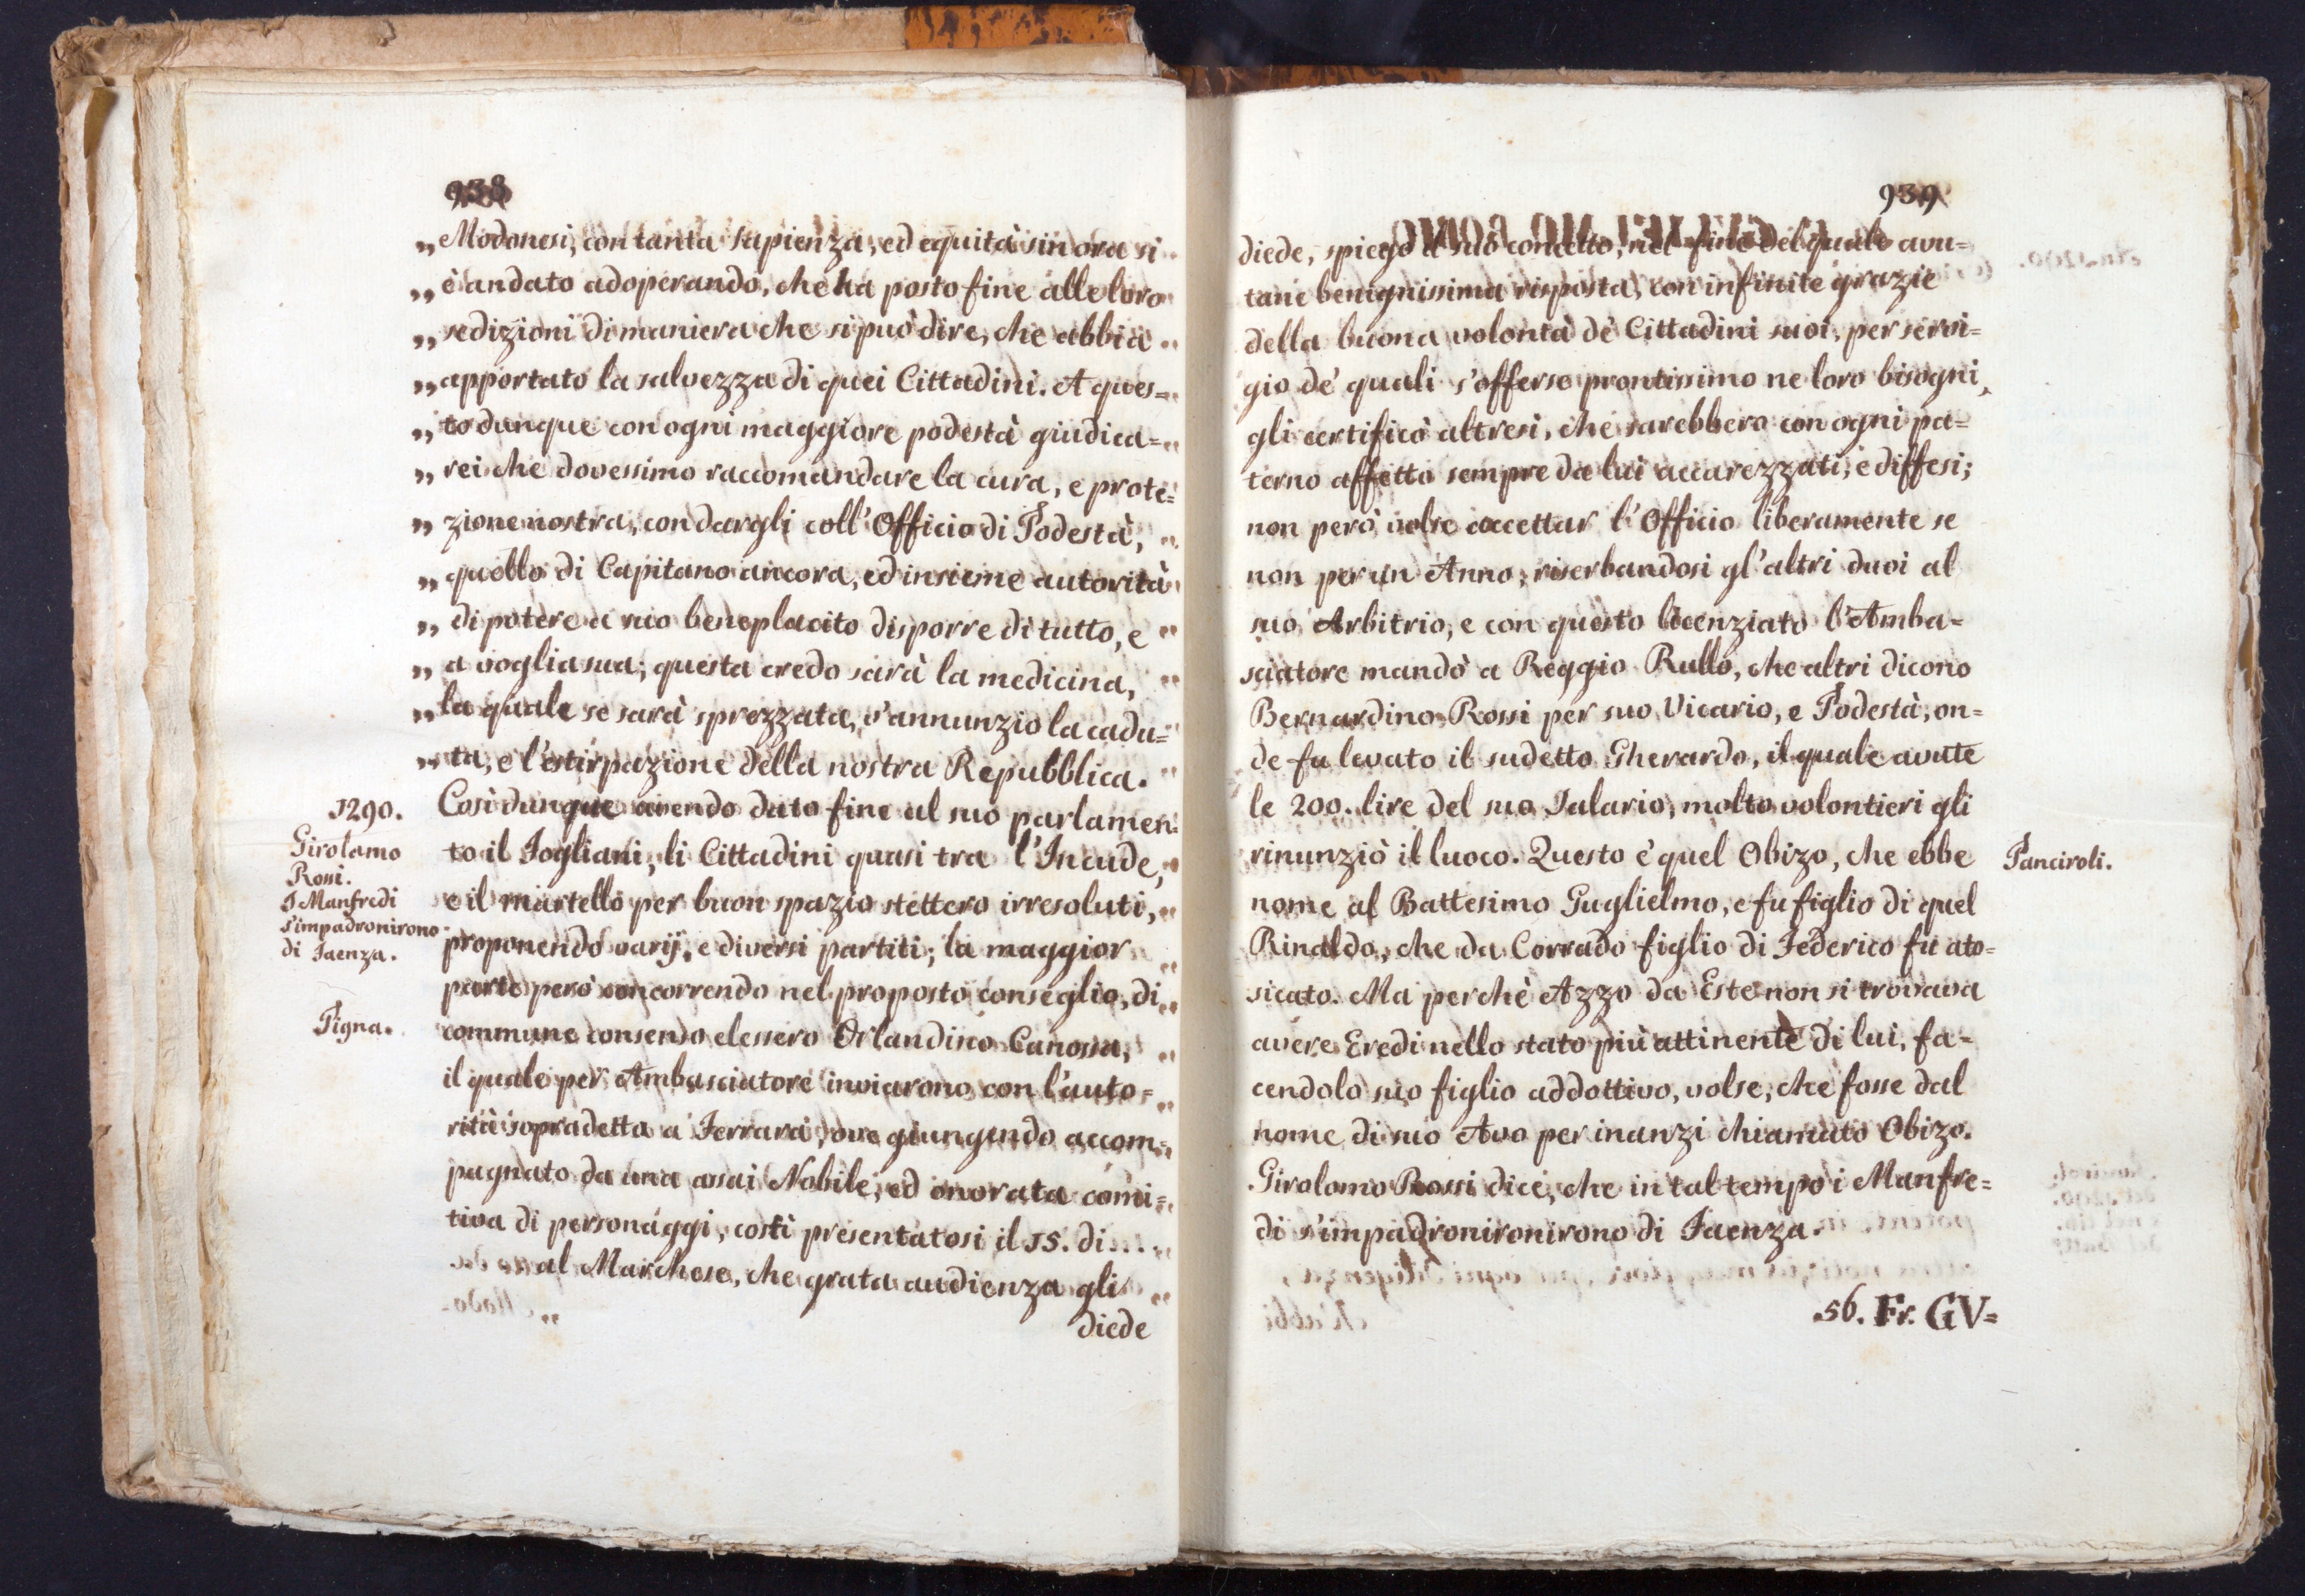 938
„ Modonesi, con tanta sapienza, ed equità sin ora si
„ è andato adoperando, che ha posto fine alle loro
„ sedizioni di maniera che si può dire, che abbia
„ apportato la salvezza di quei Cittadini. A ques=
„ to dunque con ogni maggiore podestà giudica=
„ rei che dovessimo raccomandare la cura, e prote=
„ zione nostra, con dargli coll'Officio di Podestà,
„ quello di Capitano ancora, ed insieme autorità
„ di potere a suo beneplacito disporre di tutto, e
„ a voglia sua; questa credo sarà la medicina,
„ la quale se sarà sprezzata, v'annunzio la cadu=
„ ta, e l'estirpazione della nostra Repubblica.
1290.
Girolamo
Rossi.
I Manfredi
s'impadronirono
di Faenza.
Pigna.
Così dunque avendo dato fine al suo parlamen=
to il Fogliani, li Cittadini quasi tra l'Incude,
e il martello per buon spazio stettero irresoluti,
proponendo varij, e diversi partiti; la maggior
parte però concorrendo nel proposto conseglio, di
commune consenso elessero Orlandino Canossa,
il quale per Ambasciatore inviarono con l'auto=
rità sopradetta a Ferrara, ove giungendo accom=
pagnato da una assai Nobile, ed onorata comi=
tiva di personaggi, costì presentatosi il 15. di....
al Marchese, che grata audienza gli
diede
939
diede, spiegò il suo concetto, nel fine del quale avu=
tane benignissima risposta, con infinite grazie
della buona volontà de' Cittadini suoi, per servi=
gio de' quali s'offerse prontissimo ne loro bisogni,
gli certificò altresì, che sarebbero con ogni pa=
terno affetto sempre da lui accarezzati, e diffesi;
non però volse accettar l'Officio liberamente se
non per un Anno, riserbandosi gl'altri duoi al
suo Arbitrio, e con questo licenziato l'Amba=
sciatore mandò a Reggio Rullo, che altri dicono
Bernardino Rossi per suo Vicario, e Podestà, on=
de fu levato il sudetto Gherardo, il quale avute
le 200. lire del suo Salario, molto volontieri gli
rinunziò il luoco. Questo è quel Obizo, che ebbe
Panciroli.
nome al Battesimo Guglielmo, e fu figlio di quel
Rinaldo, che da Corrado figlio di Federico fu ato=
sicato. Ma perchè Azzo da Este non si trovava
avere Eredi nello stato più attinente di lui, fa=
cendolo suo figlio addottivo, volse, che fosse dal
nome di suo Avo per inanzi chiamato Obizo.
Girolomo Rossi dice, che in tal tempo i Manfre=
di s'impadronironirono di Faenza.
56. Fr. GV=